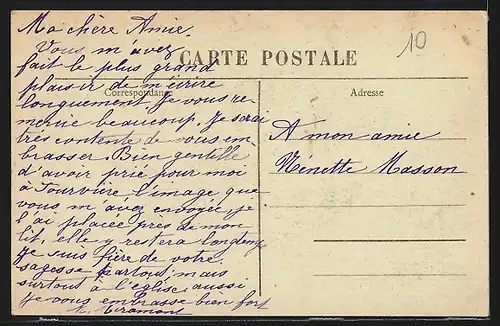 Ma chère Amie.
Vous m'avez
fait le plus grand
plaisir de m'écrire
longuement, je vous re-
mercie beaucoup, je serai
très contente de vous em-
brasser. Bien gentille
d'avoir prié pour moi
à Fourvière l'image que
vous m'avez envoyée je
l'ai placée près de mon
lit, elle y restera longtemps
je suis fière de votre
sagesse partout, mais
surtout à l'église, aussi
je vous embrasse bien fort
Miramont
CARTE POSTALE
10
Correspondance
Adresse
A mon amie
Nénette Masson